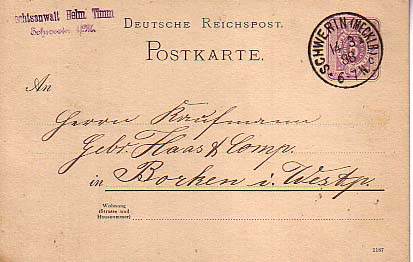 Rechtsanwalt Helm. Timm
Schwerin i/M.
DEUTSCHE REICHSPOST.
POSTKARTE.
SCHWERIN (MECKLB)
6-7 N.
An
Herrn Kaufmann
Gebr. Haas & Comp.
in Borken i. Westp.
Wohnung
(Strasse und
Hausnummer)
1187